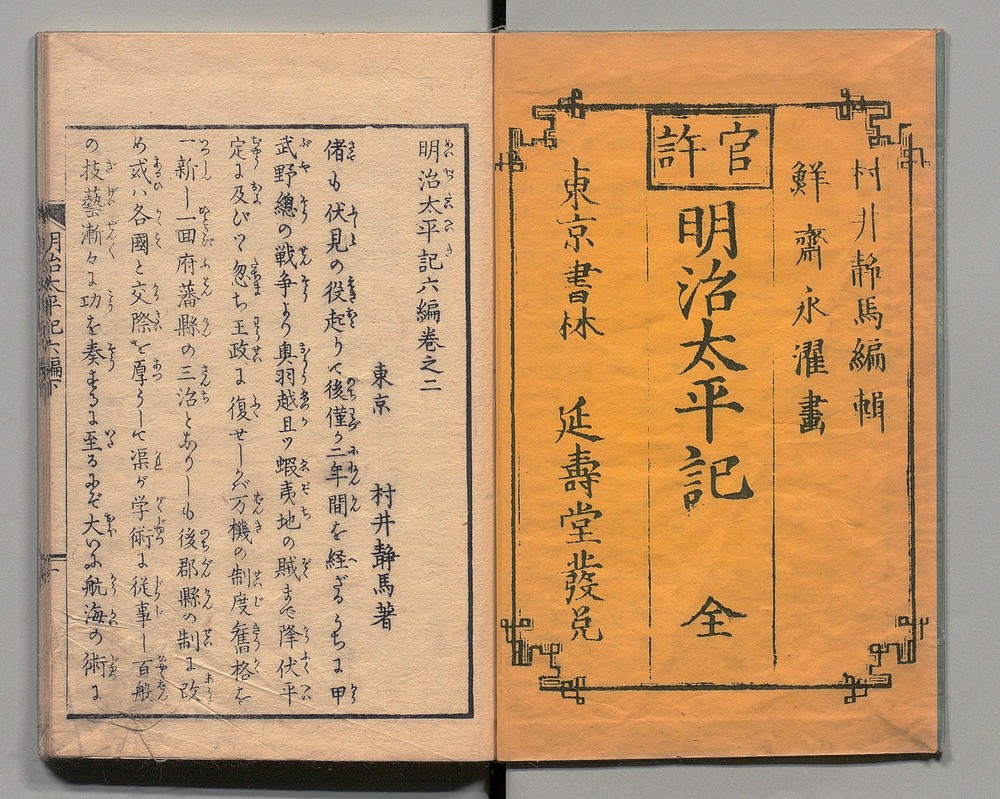 村井靜馬編輯
鮮齋永濯畫
官許
明治太平記 全
東京書林 延壽堂發兌
明治太平記六編卷之二
東京 村井靜馬著
偖も伏見の役起りて後僅か二年間を経ざるうちに甲
武野總の戦争より奥羽越且ツ蝦夷地の賊まで降伏平
定に及びて忽ち王政に復せしかバ万機の制度舊格を
一新し一囬府藩縣の三治となりしも後郡縣の制に改
め或ハ各國と交際を厚うして渠が学術に従事し百般
の技藝漸々に功を奏するに至るにぞ大いに航海の術に
明治太平記六編下